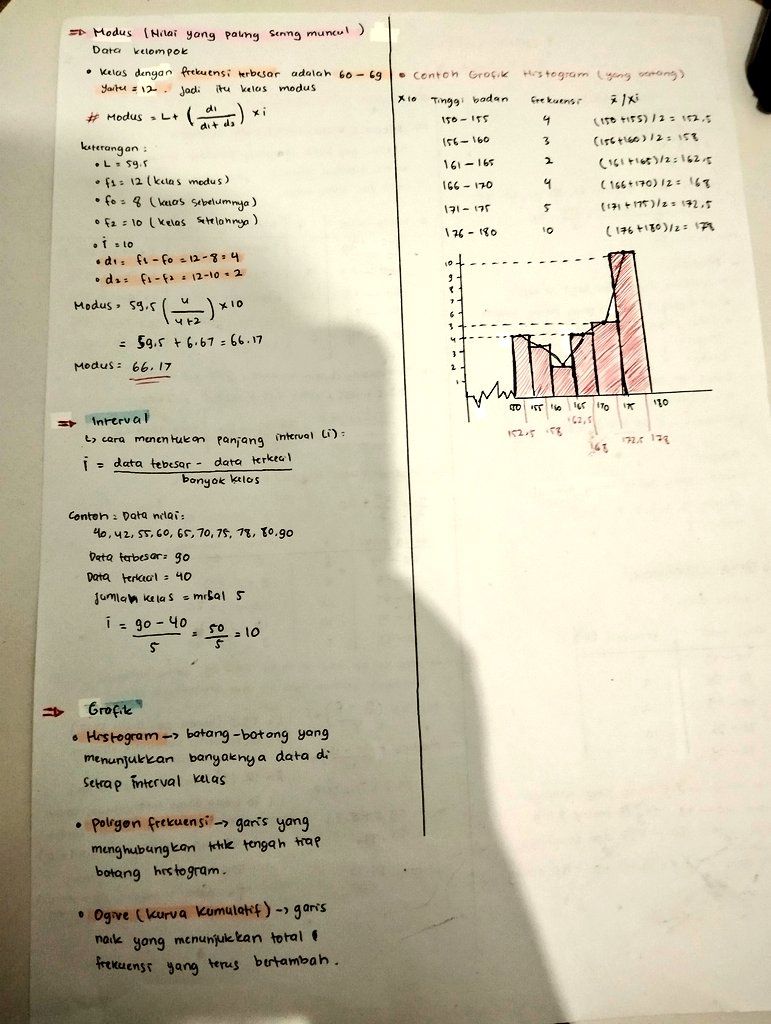 ⇒ Modus (Nilai yang paling sering muncul)
Data kelompok
• Kelas dengan frekuensi terbesar adalah 60 – 69
yaitu = 12. Jadi itu kelas modus
# Modus = L + (d1 / d1 + d2) × i
keterangan :
• L = 59,5
• f1 = 12 (kelas modus)
• f0 = 8 (kelas sebelumnya)
• f2 = 10 (kelas setelahnya)
• i = 10
• d1 = f1 – f0 = 12 – 8 = 4
• d2 = f1 – f2 = 12 – 10 = 2
Modus = 59,5 (4 / 4+2) × 10
= 59,5 + 6,67 = 66.17
Modus = 66.17
⇒ Interval
↳ cara menentukan panjang interval (i) :
i = data tebesar – data terkecil
banyak kelas
Contoh = Data nilai :
40, 42, 55, 60, 65, 70, 75, 78, 80, 90
Data terbesar = 90
Data terkecil = 40
jumlah kelas = misal 5
i = 90 – 40 / 5 = 50 / 5 = 10
⇒ Grafik
• Histogram → batang-batang yang
menunjukkan banyaknya data di
setiap interval kelas
• Poligon frekuensi → garis yang
menghubungkan titik tengah tiap
batang histogram.
• Ogive (kurva kumulatif) → garis
naik yang menunjukkan total
frekuensi yang terus bertambah.
• Contoh Grafik Histogram (yang batang)
×10 Tinggi badan frekuensi x̄ / xi
150 – 155 4 (150 + 155) / 2 = 152,5
156 – 160 3 (156 + 160) / 2 = 158
161 – 165 2 (161 + 165) / 2 = 162,5
166 – 170 4 (166 + 170) / 2 = 168
171 – 175 5 (171 + 175) / 2 = 172,5
176 – 180 10 (176 + 180) / 2 = 178
10
9
8
7
6
5
4
3
2
1
150 155 160 165 170 175 180
152,5 158 162,5 168 172,5 178